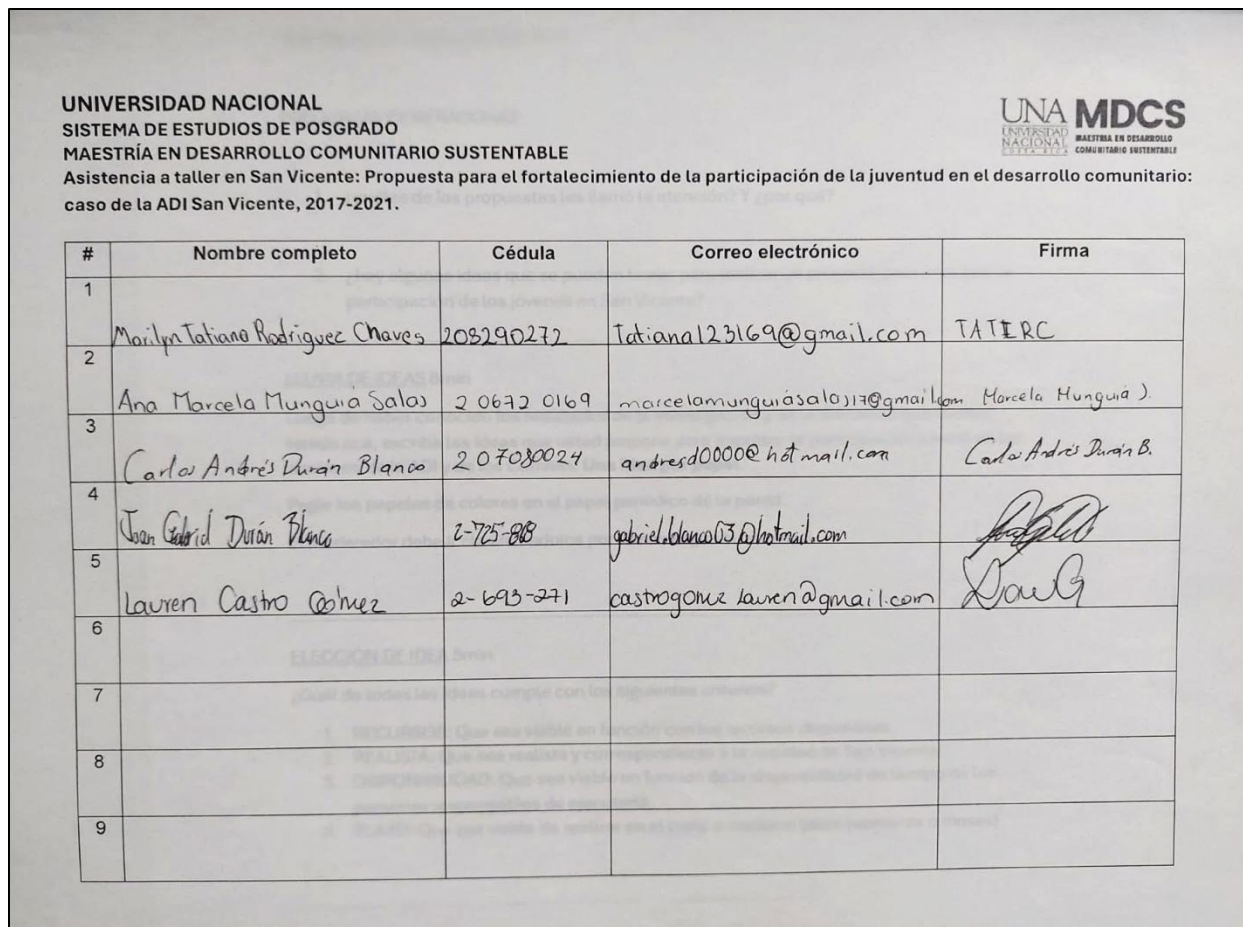 UNIVERSIDAD NACIONAL
SISTEMA DE ESTUDIOS DE POSGRADO
MAESTRÍA EN DESARROLLO COMUNITARIO SUSTENTABLE
Asistencia a taller en San Vicente: Propuesta para el fortalecimiento de la participación de la juventud en el desarrollo comunitario:
caso de la ADI San Vicente, 2017-2021.
UNA
UNIVERSIDAD
NACIONAL
COSTA RICA
MDCS
MAESTRÍA EN DESARROLLO
COMUNITARIO SUSTENTABLE
# Nombre completo Cédula Correo electrónico Firma
1 Marilyn Tatiana Rodriguez Chaves 208290272 Tatiana123169@gmail.com TATIRC
2 Ana Marcela Munguia Salas 2 0672 0169 marcelamunguiásalas17@gmail.com Marcela Munguiá S.
3 Carlos Andrés Durán Blanco 207080024 andresd0000@hotmail.com Carlos Andrés Durán B.
4 Joan Gabriel Durán Blanco 2-725- gabriel.blanco03@hotmail.com
5 Lauren Castro Gómez 2-693-271 castrogomez lauren@gmail.com
6
7
8
9